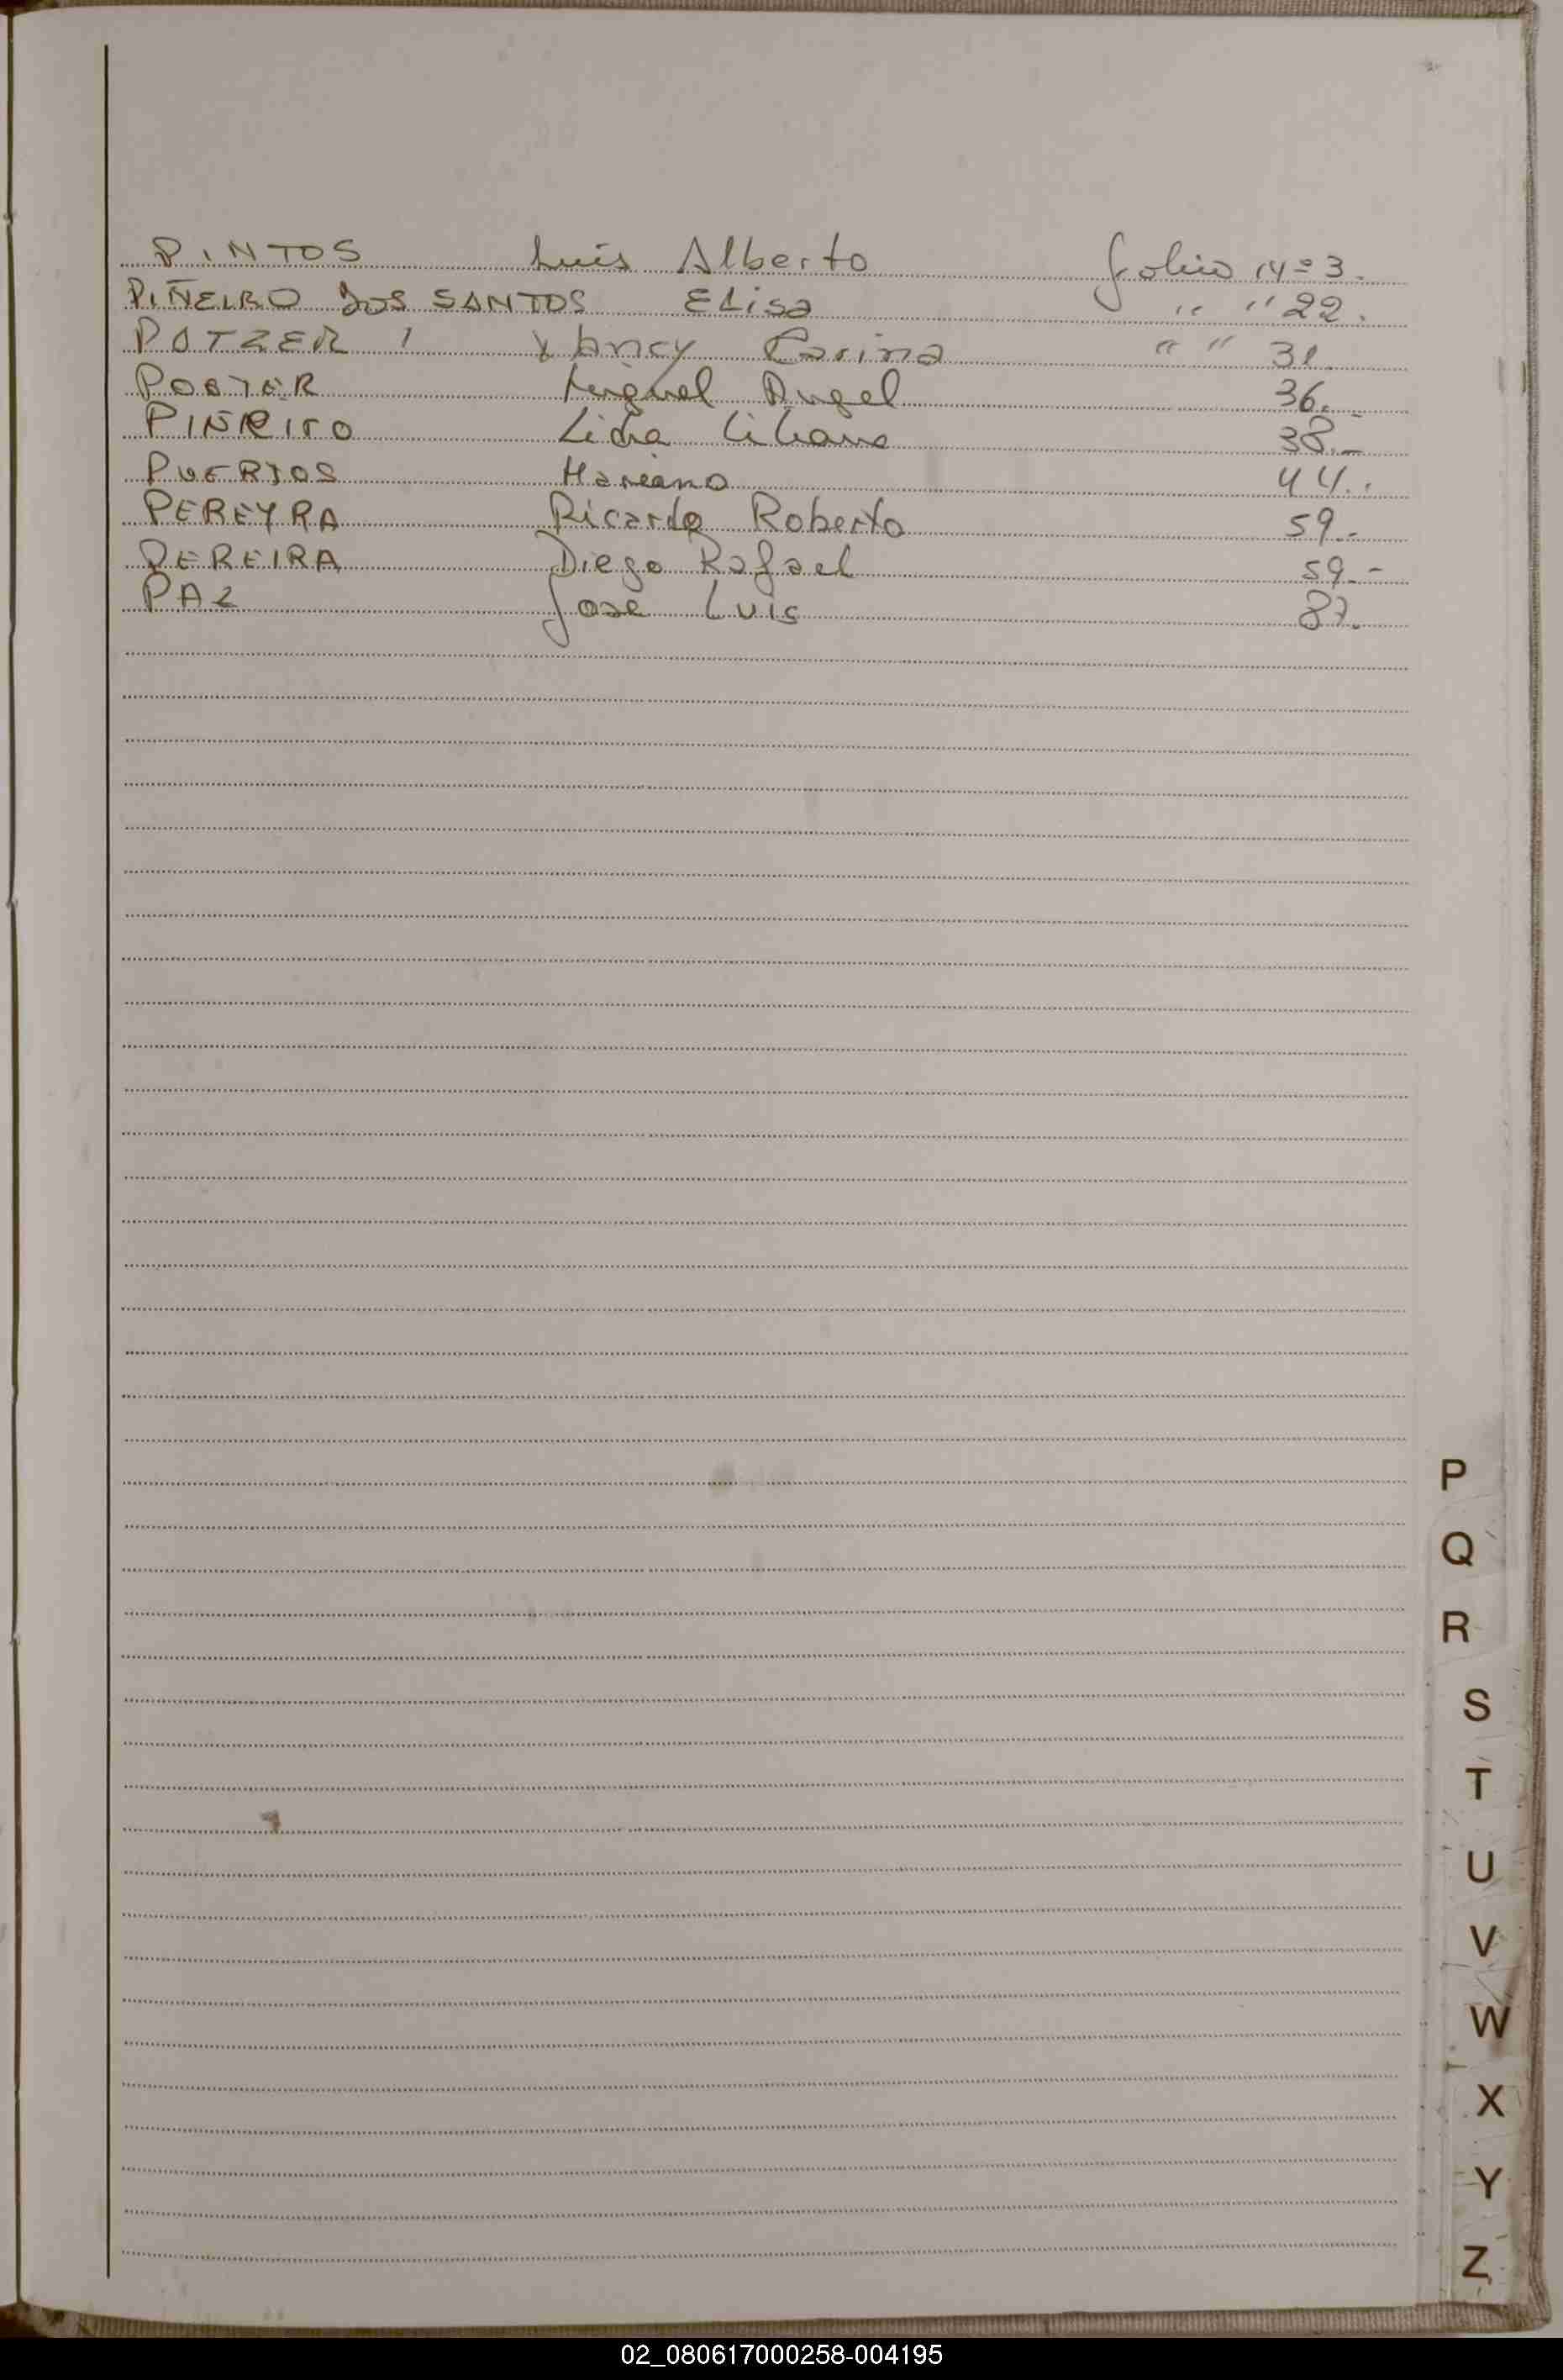 PINTOS Luis Alberto folio Nº 3.
PIÑEIRO DOS SANTOS Elisa " " 22.
POTZER Nancy Carina " " 31.
POSTER Miguel Angel 36.-
PIÑEIRO Lidia Liliana 38.-
PUERTOS Mariano 44.-
PEREYRA Ricardo Roberto 59.-
PEREIRA Diego Rafael 59.-
PAZ Jose Luis 87.
P
Q
R
S
T
U
V
W
X
Y
Z
02_080617000258-004195